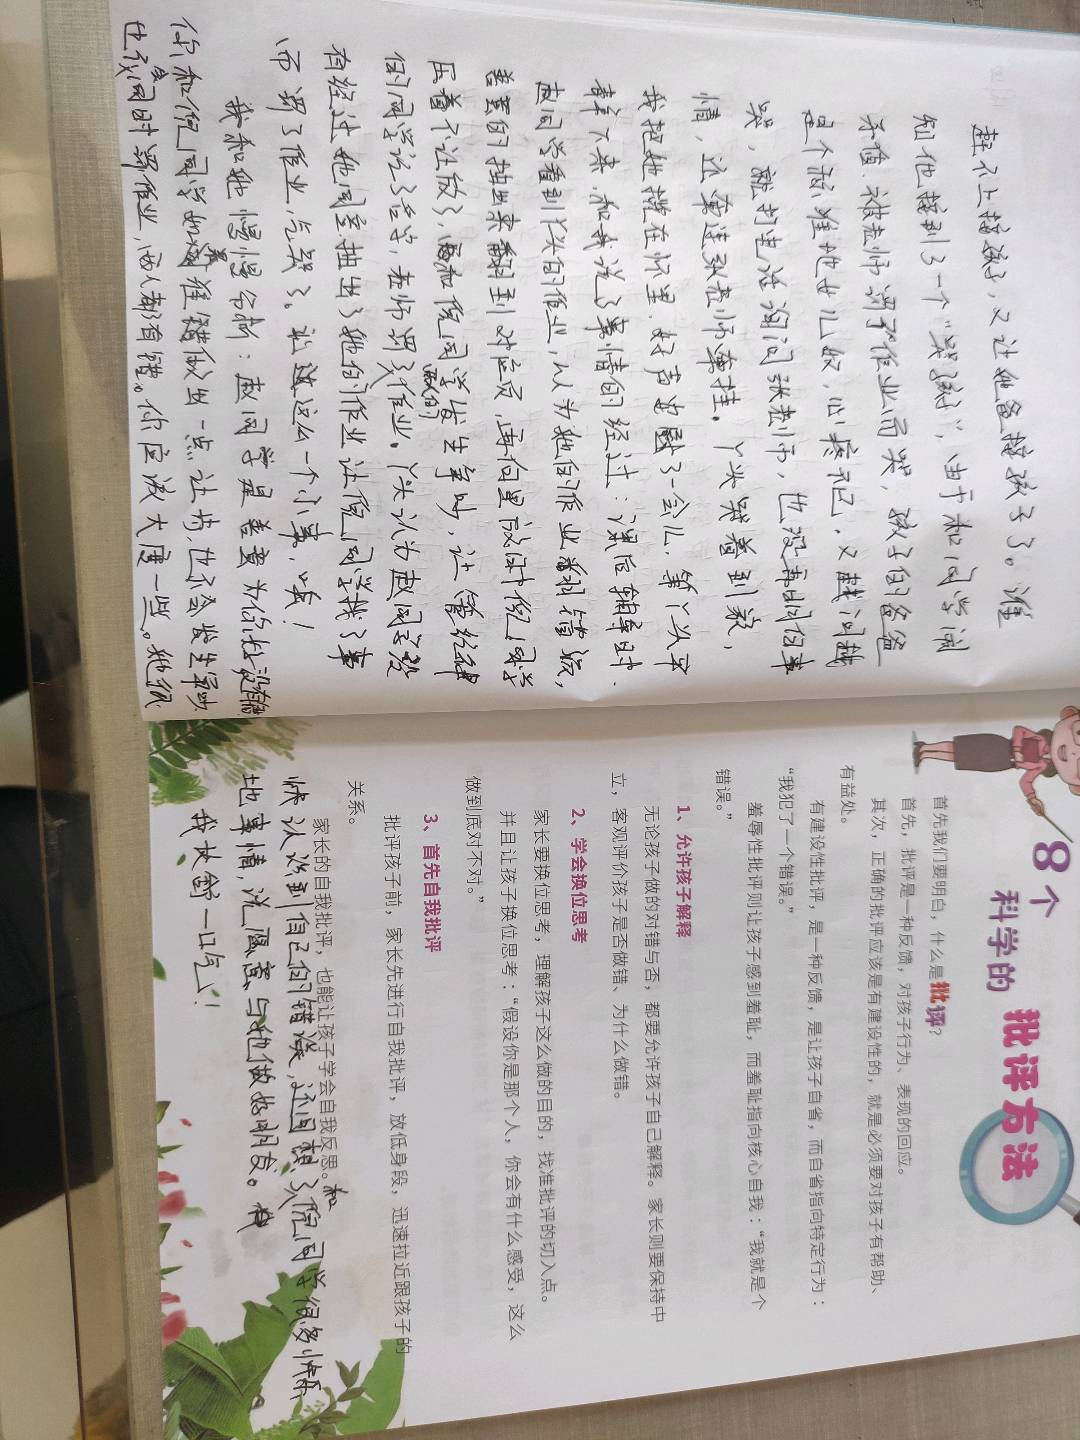 赶不上接孩子,又让她爸接孩子了。谁
知他接到了一个“哭孩”,由于和同学闹
矛盾,被老师罚了作业而哭,孩子的爸爸
是个
哭,就打电话询问张老师,也没再明何事
情,还牵连张老师牵挂。丫头哭着到家,
我把她搅在怀里,好声安慰了一会儿,等丫头平
静下来,和我说了事情的经过:课后辅导时,
赵同学看到丫头的作业,以为她的作业翻错页,
善意的抽出来翻到对应页,再向里放时倪同学
压着不让放了,和倪同学发生争吵,让管纪律
的同学记了名字,老师罚了作业。丫头认为赵同学没
有经过她同意抽出了她的作业让倪同学找了事
而罚了作业,气哭了。就这么一个小事,唉!
我和她慢慢分析:赵同学是善意为你好没有错
你和倪同学如果谁错做出一点让步,也不会发生争吵
也不会同时罚作业,两人都有错。你应该大度一些。她很
8个
科学的 批评方法
首先我们要明白,什么是批评?
首先,批评是一种反馈,对孩子行为、表现的回应。
其次,正确的批评应该是有建设性的,就是必须要对孩子有帮助、
有益处。
有建设性批评,是一种反馈,是让孩子自省,而自省指向特定行为:
“我犯了一个错误。”
羞辱性批评则让孩子感到羞耻,而羞耻指向核心自我:“我就是个
错误。”
1、允许孩子解释
无论孩子做的对错与否,都要允许孩子自己解释。家长则要保持中
立,客观评价孩子是否做错、为什么做错。
2、学会换位思考
家长要换位思考,理解孩子这么做的目的,找准批评的切入点。
并且让孩子换位思考:“假设你是那个人,你会有什么感受,这么
做到底对不对。”
3、首先自我批评
批评孩子前,家长先进行自我批评,放低身段,迅速拉近跟孩子的
关系。
家长的自我批评,也能让孩子学会自我反思。
快认识到自己的错误,还回想了和倪同学很多快乐
地事情,说愿意与他做好朋友。
我长舒一口气!